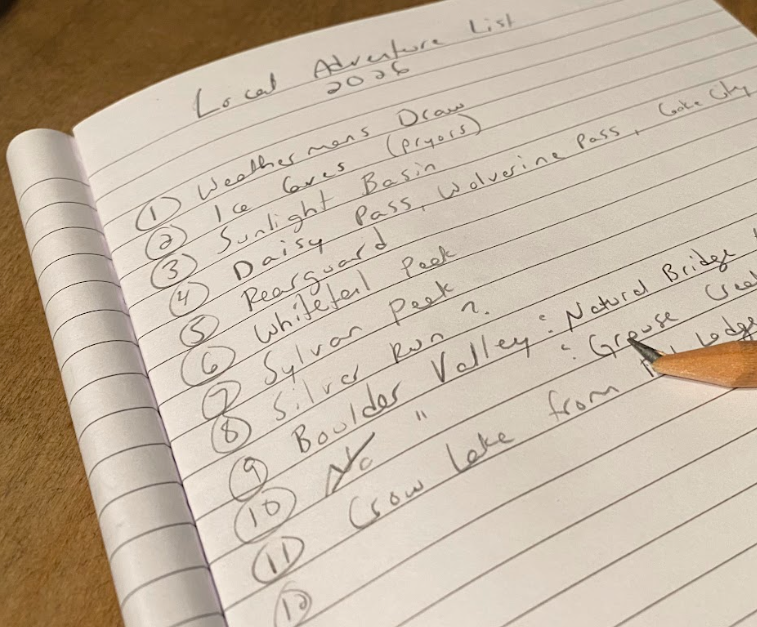 Local Adventure List
2026
① Weathermans Draw
② Ice Caves (Pryors)
③ Sunlight Basin
④ Daisy Pass, Wolverine Pass, Cooke City
⑤ Rearguard
⑥ Whitetail Peak
⑦ Sylvan Peak
⑧ Silver Run ?
⑨ Boulder Valley: Natural Bridge
⑩ " : Grouse
⑪ Crow Lake from Lodge
⑫